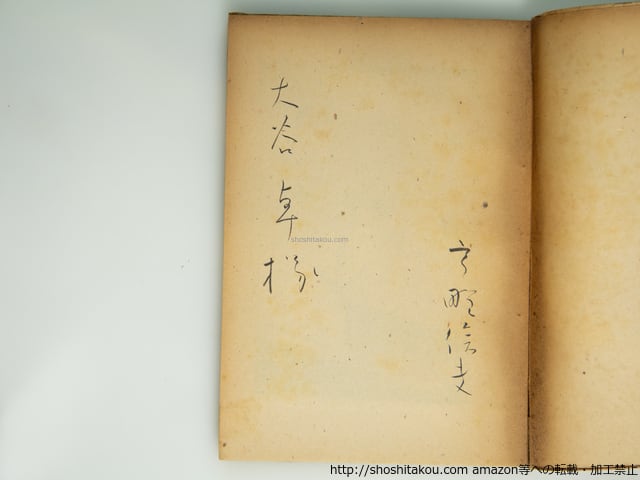 宇野信夫
大谷卓様
shoshitakou.com
http://shoshitakou.com amazon等への転載・加工禁止